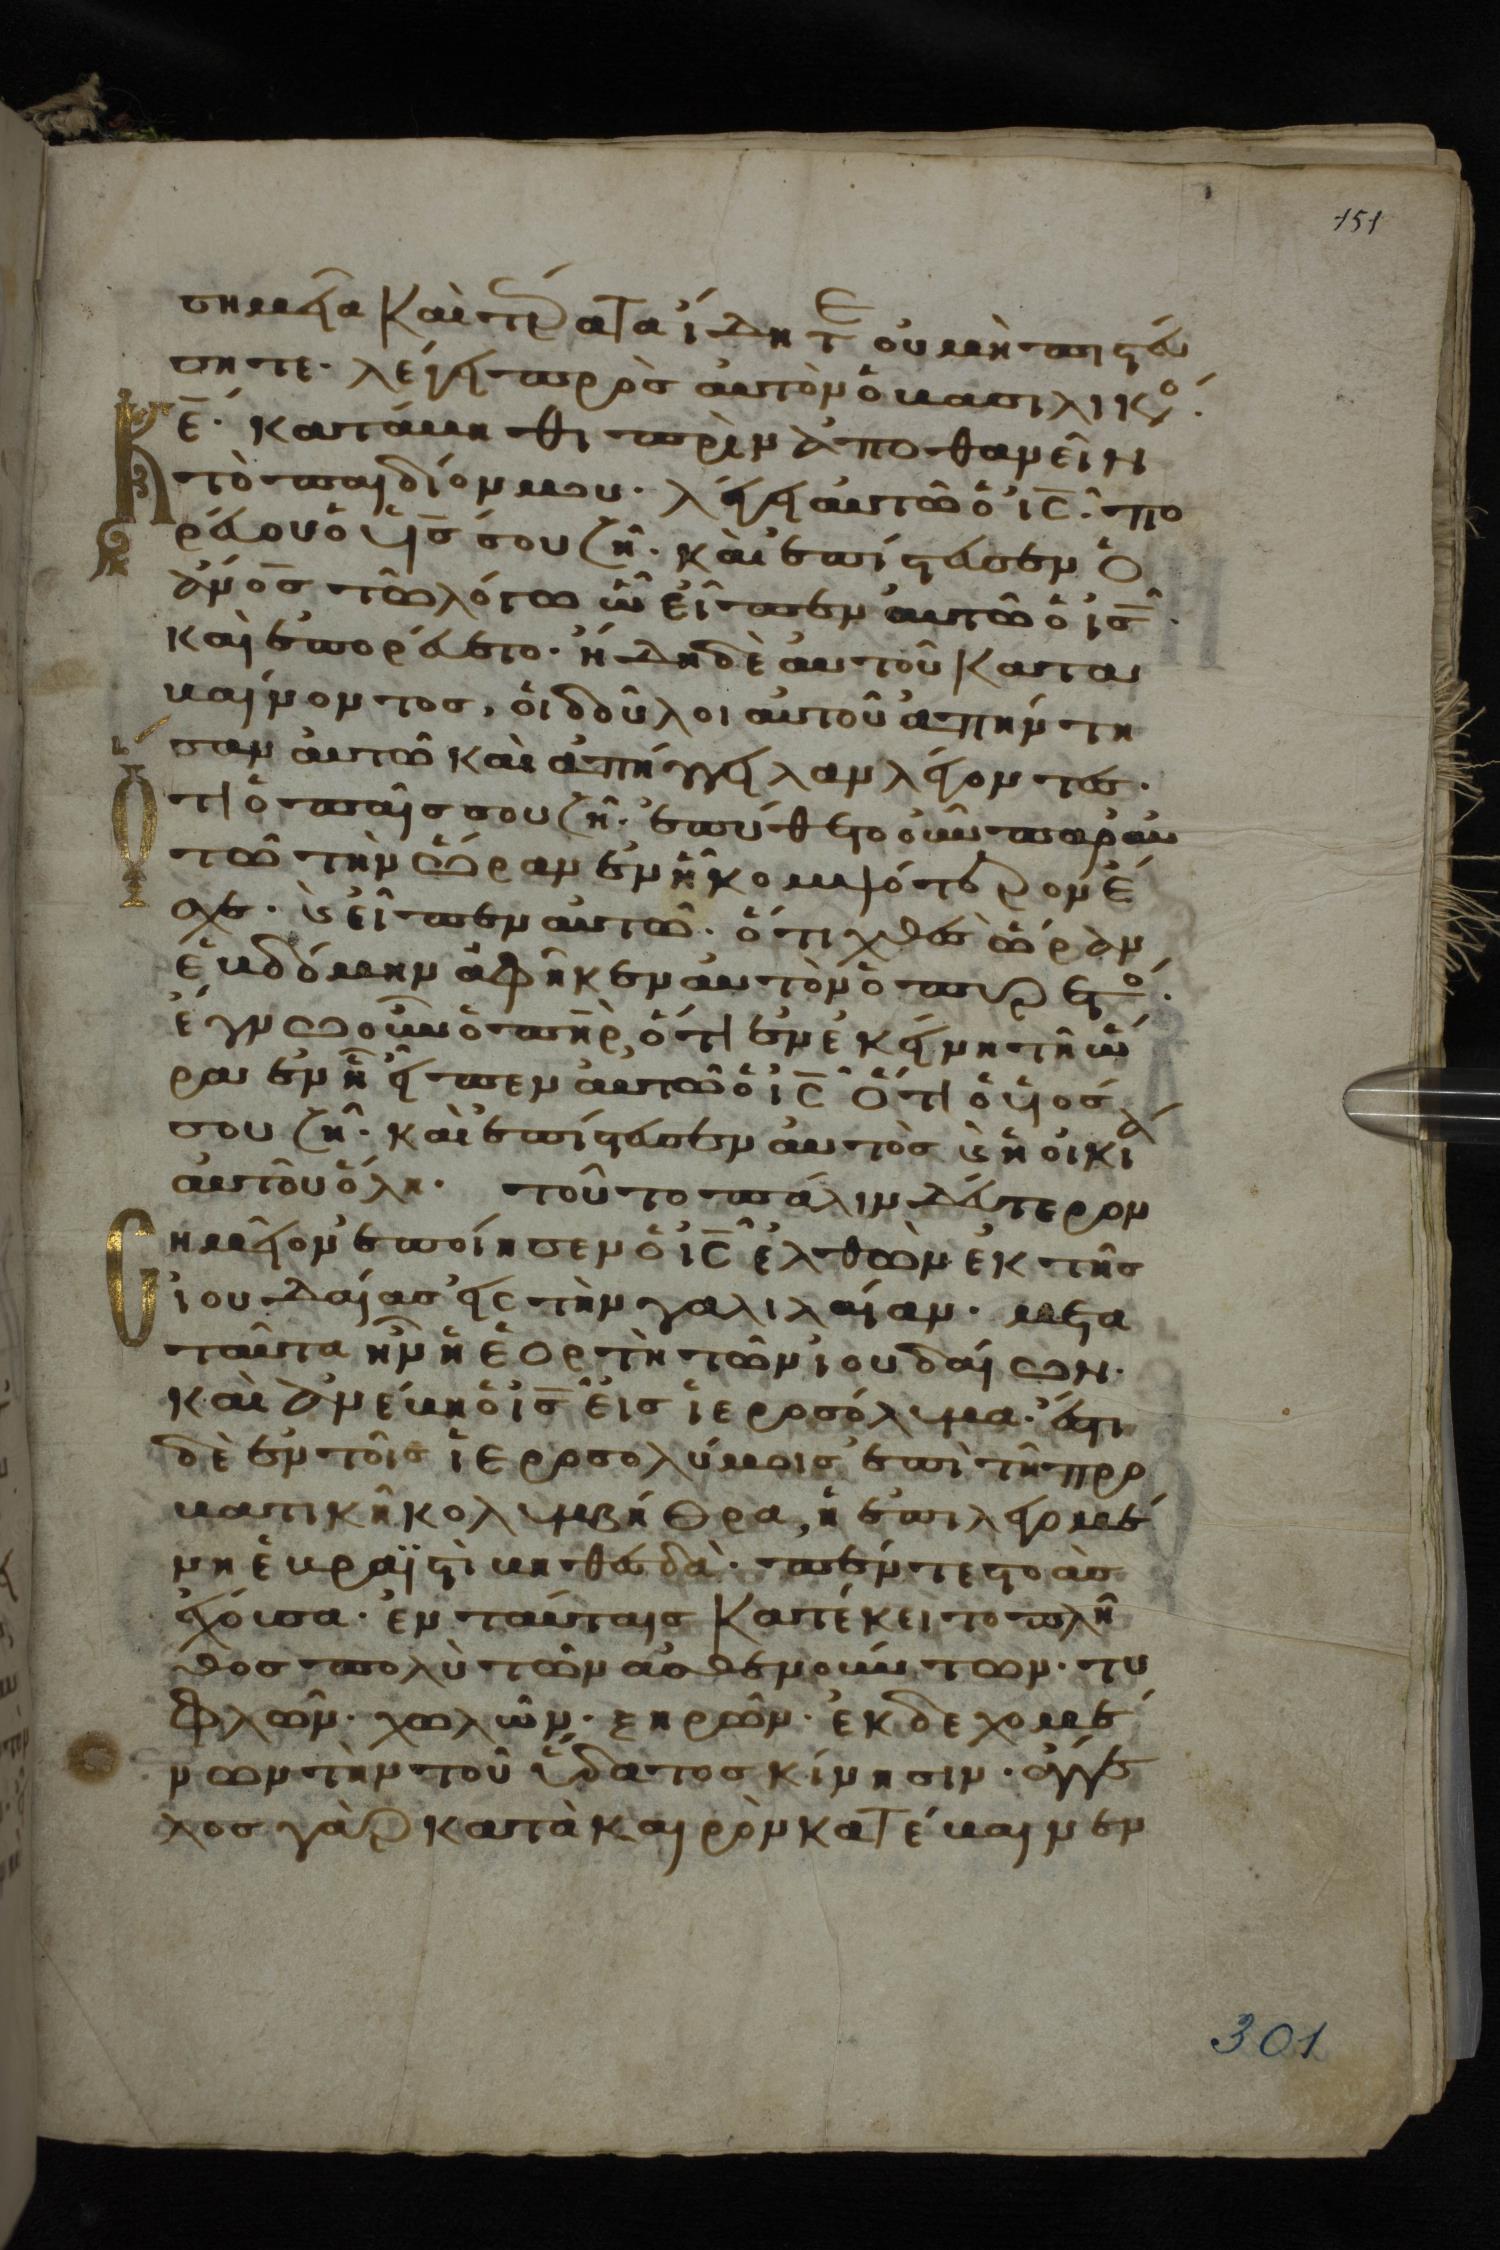 151
σημεῖα καὶ τέρατα ἴδητε οὐ μὴ πιστεύ
σητε· λέγει πρὸς αὐτὸν ὁ βασιλικό·
κ̅ε̅· κατάβηθι πρὶν ἀποθανεῖν
τὸ παιδίον μου· λέγει αὐτῶ ὁ ι̅ς̅· πο
ρεύου ὁ υἱός σου ζῆ· καὶ ἐπίστευσεν ὁ
ἀνο̅ς̅ τῶ λόγω ὧ εἶπεν αὐτῶ ὁ ι̅ς̅·
καὶ ἐπορεύετο· ἤδη δὲ αὐτοῦ κατα
βαίνοντος, οἱ δοῦλοι αὐτοῦ ἀπήντη
σαν αὐτῶ καὶ ἀπήγγειλαν λέγοντες·
ὅτι ὁ παῖς σου ζῆ· ἐπύθετο οὖν παρ αὐ
τῶ τὴν ὥραν ἐν ἧ κομψότερον ἔ
σχε· ϗ εἶπεν αὐτῶ· ὅτι χθὲς ὥραν
ἑβδόμην ἀφῆκεν αὐτὸν ὁ πυρετό·
ἔγνω οὖν ὁ πη̅ρ̅ ὅτι ἐν ἐκείνη τῆ ὥ
ρα ἐν ἧ εἶπεν αὐτῶ ὁ ι̅ς̅ ὅτι ὁ υἱός
σου ζῆ· καὶ ἐπίστευσεν αὐτὸς ϗ ἡ οἰκία
αὐτοῦ ὅλη· τοῦτο πάλιν δεύτερον
σημεῖον ἐποίησεν ὁ ι̅ς̅ ἐλθὼν ἐκ τῆς
ἰουδαίας εἰς τὴν γαλιλαίαν· μετα
ταῦτα ἦν ἡ ἑορτὴ τῶν ἰουδαίων·
καὶ ἀνέβη ὁ ι̅ς̅ εἰς ἱεροσόλυμα· ἔστι
δὲ ἐν τοῖς ἱεροσολύμοις ἐπὶ τῆ προ
βατικῆ κολυμβήθρα, ἡ ἐπιλεγομέ
νη ἑβραϊστὶ βηθεσδὰ· πέντε στοὰς
ἔχουσα· ἐν ταύταις κατέκειτο πλῆ
θος πολὺ τῶν ἀσθενούντων· τυ
φλῶν· χωλῶν· ξηρῶν· ἐκδεχομέ
νων τὴν τοῦ ὕδατος κίνησιν· ἄγγε
λος γὰρ κατὰ καιρὸν κατέβαινεν
301